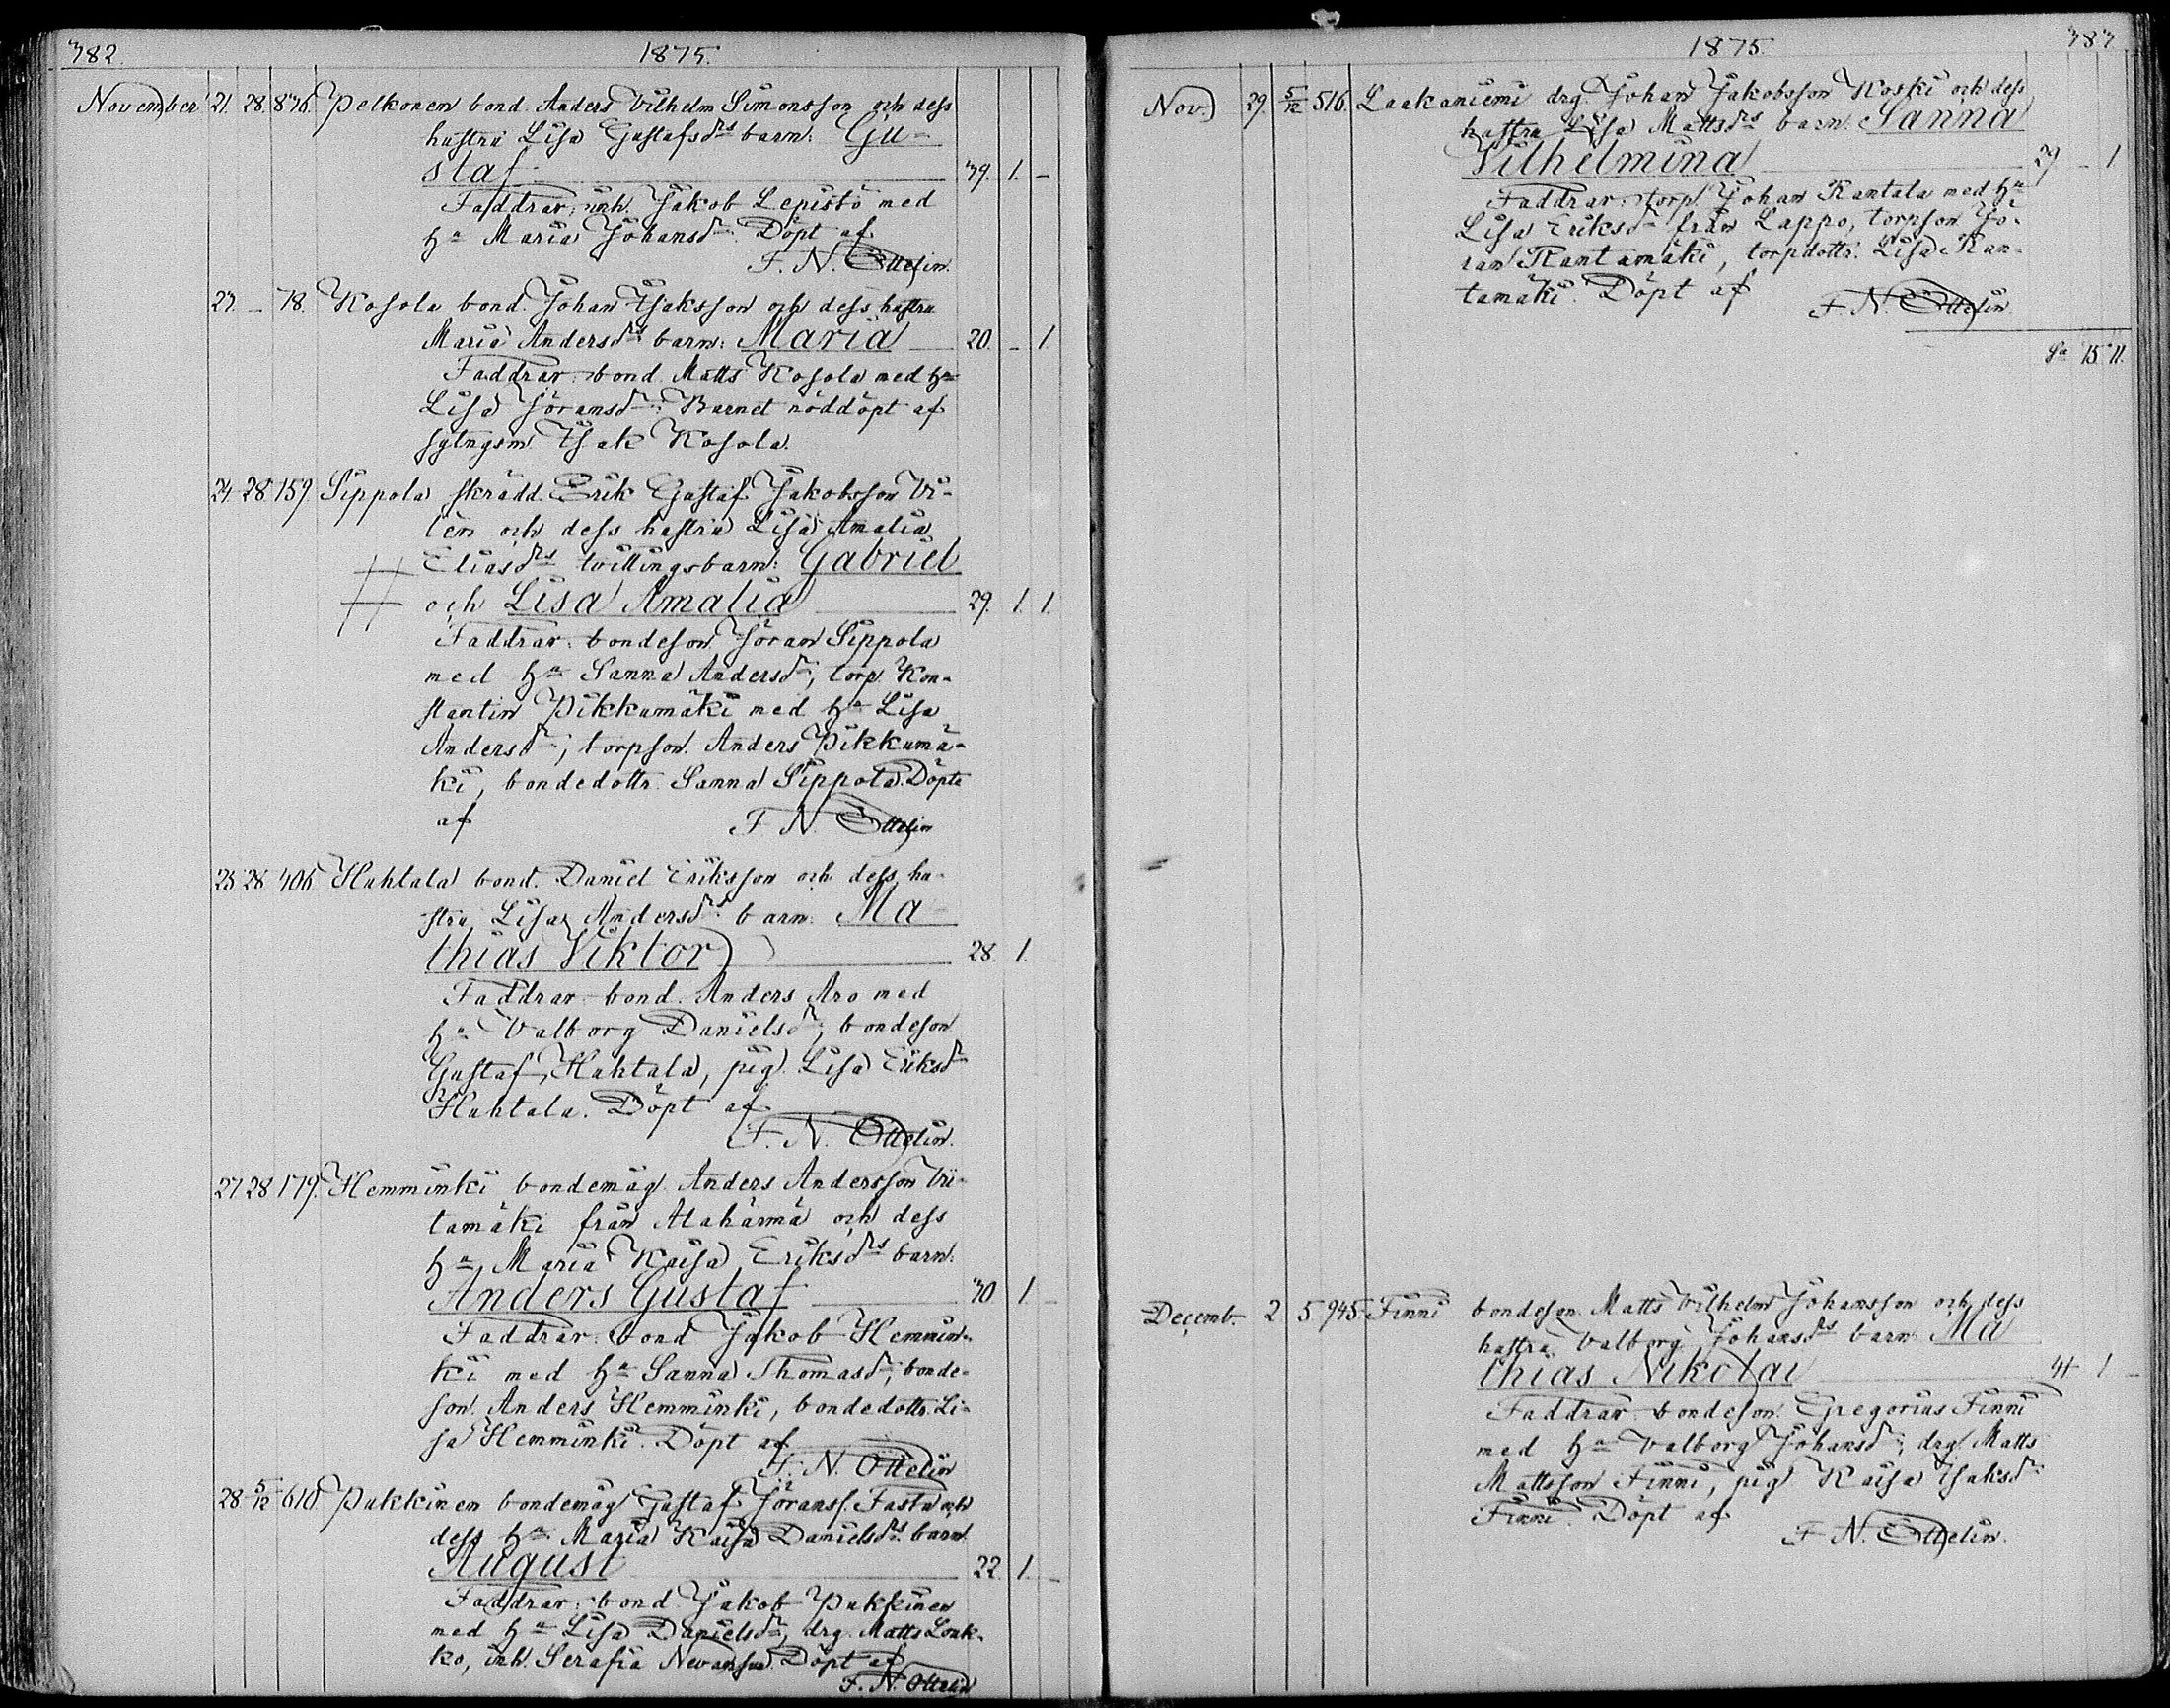 382. 1875.
November 21. 28. 836. Pelkonen bond. Anders Vilhelm Simonsson och dess
hustru Lisa Gustafsdrs barn: Gu-
staf 39. 1. –
Faddrar: inh. Jakob Lepistö med
hu Maria Johansdr. Döpt af
F. N. Ottelin.
23. – 78. Kosola bond. Johan Isaksson och dess hustru
Maria Andersdrs barn: Maria 20. – 1.
Faddrar: bond. Matts Kosola med hu
Lisa Jöransdr. Barnet nöddöpt af
sytngsm. Isak Kosola.
24 28 159. Sippola skrädd. Erik Gustaf Jakobsson Vi-
len och dess hustru Lisa Amalia
Eliasdrs tvillingsbarn: Gabriel
och Lisa Amalia 29. 1. 1.
Faddrar: bondeson Jöran Sippola
med hu Sanna Andersdr, torp. Kon-
stantin Pikkumäki med hu Lisa
Andersdr, torpson. Anders Pikkumä-
ki, bondedottr. Sanna Sippola. Döpte
af F. N. Ottelin
25 28 406 Huhtala bond. Daniel Eriksson och dess hu-
stru Lisa Andersdrs barn: Ma-
thias Viktor 28. 1.
Faddrar: bond. Anders Aro med
hu Valborg Danielsdr, bondeson
Gustaf Huhtala, pig. Lisa Eriksdr
Huhtala. Döpt af
F. N. Ottelin.
27 28 179. Hemminki bondemåg Anders Andersson Vii-
tamäki från Alahärmä och dess
hu Maria Kaisa Eriksdrs barn:
Anders Gustaf 30 1. –
Faddrar: bond Jakob Hemmin-
ki med hu Sanna Thomasdr, bonde-
son. Anders Hemminki, bondedottr. Li-
sa Hemminki. Döpt af
F. N. Ottelin
28 5/12 610. Pukkinen bondemåg Gustaf Göranss. Fasta och
dess hu Maria Kaisa Danielsdrs barn
August 22. 1. –
Faddrar: bond. Jakob Pukkinen
med hu Lisa Danielsdr, drg. Matts Louk-
ko, inh. Serafia Döpt af
F. N. Ottelin
1875. 383
Nov. 29. 5/12 516. Laakaniemi drg. Johan Jakobsson Koski och dess
hustru Lisa Mattsdrs barn: Sanna
Vilhelmina 29 – 1
Faddrar: torp. Johan Rantala med hu
Lisa Eriksdr från Lappo, torpson Jö-
ran Rantamäki, torpdottr. Lisa Ran-
tamäki. Döpt af
F. N. Ottelin
Sa 15. 11.
Decemb. 2 5 945. Finni bondeson. Matts Vilhelm Johansson och dess
hustru Valborg Johansdrs barn: Ma
thias Nikolai 41 1 –
Faddrar: bondeson. Gregorius Finni
med hu Valborg Johansdr, drg. Matts
Mattsson Finni, pig. Kaisa Isaksdr
Finni. Döpt af
F. N. Ottelin.